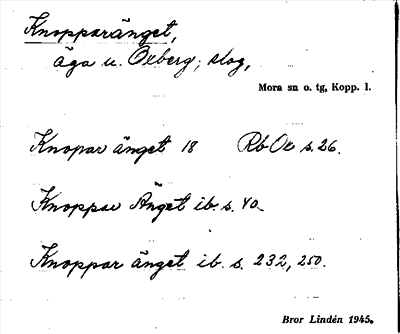 Knopparänget,
äga u. Oxberg; slog,
Mora sn o. tg, Kopp. l.
Knopar änget 18 Rb Ox s. 26.
Knoppar Änget ib. s. 40.
Knoppar änget ib. s. 232, 250.
Bror Lindén 1945.